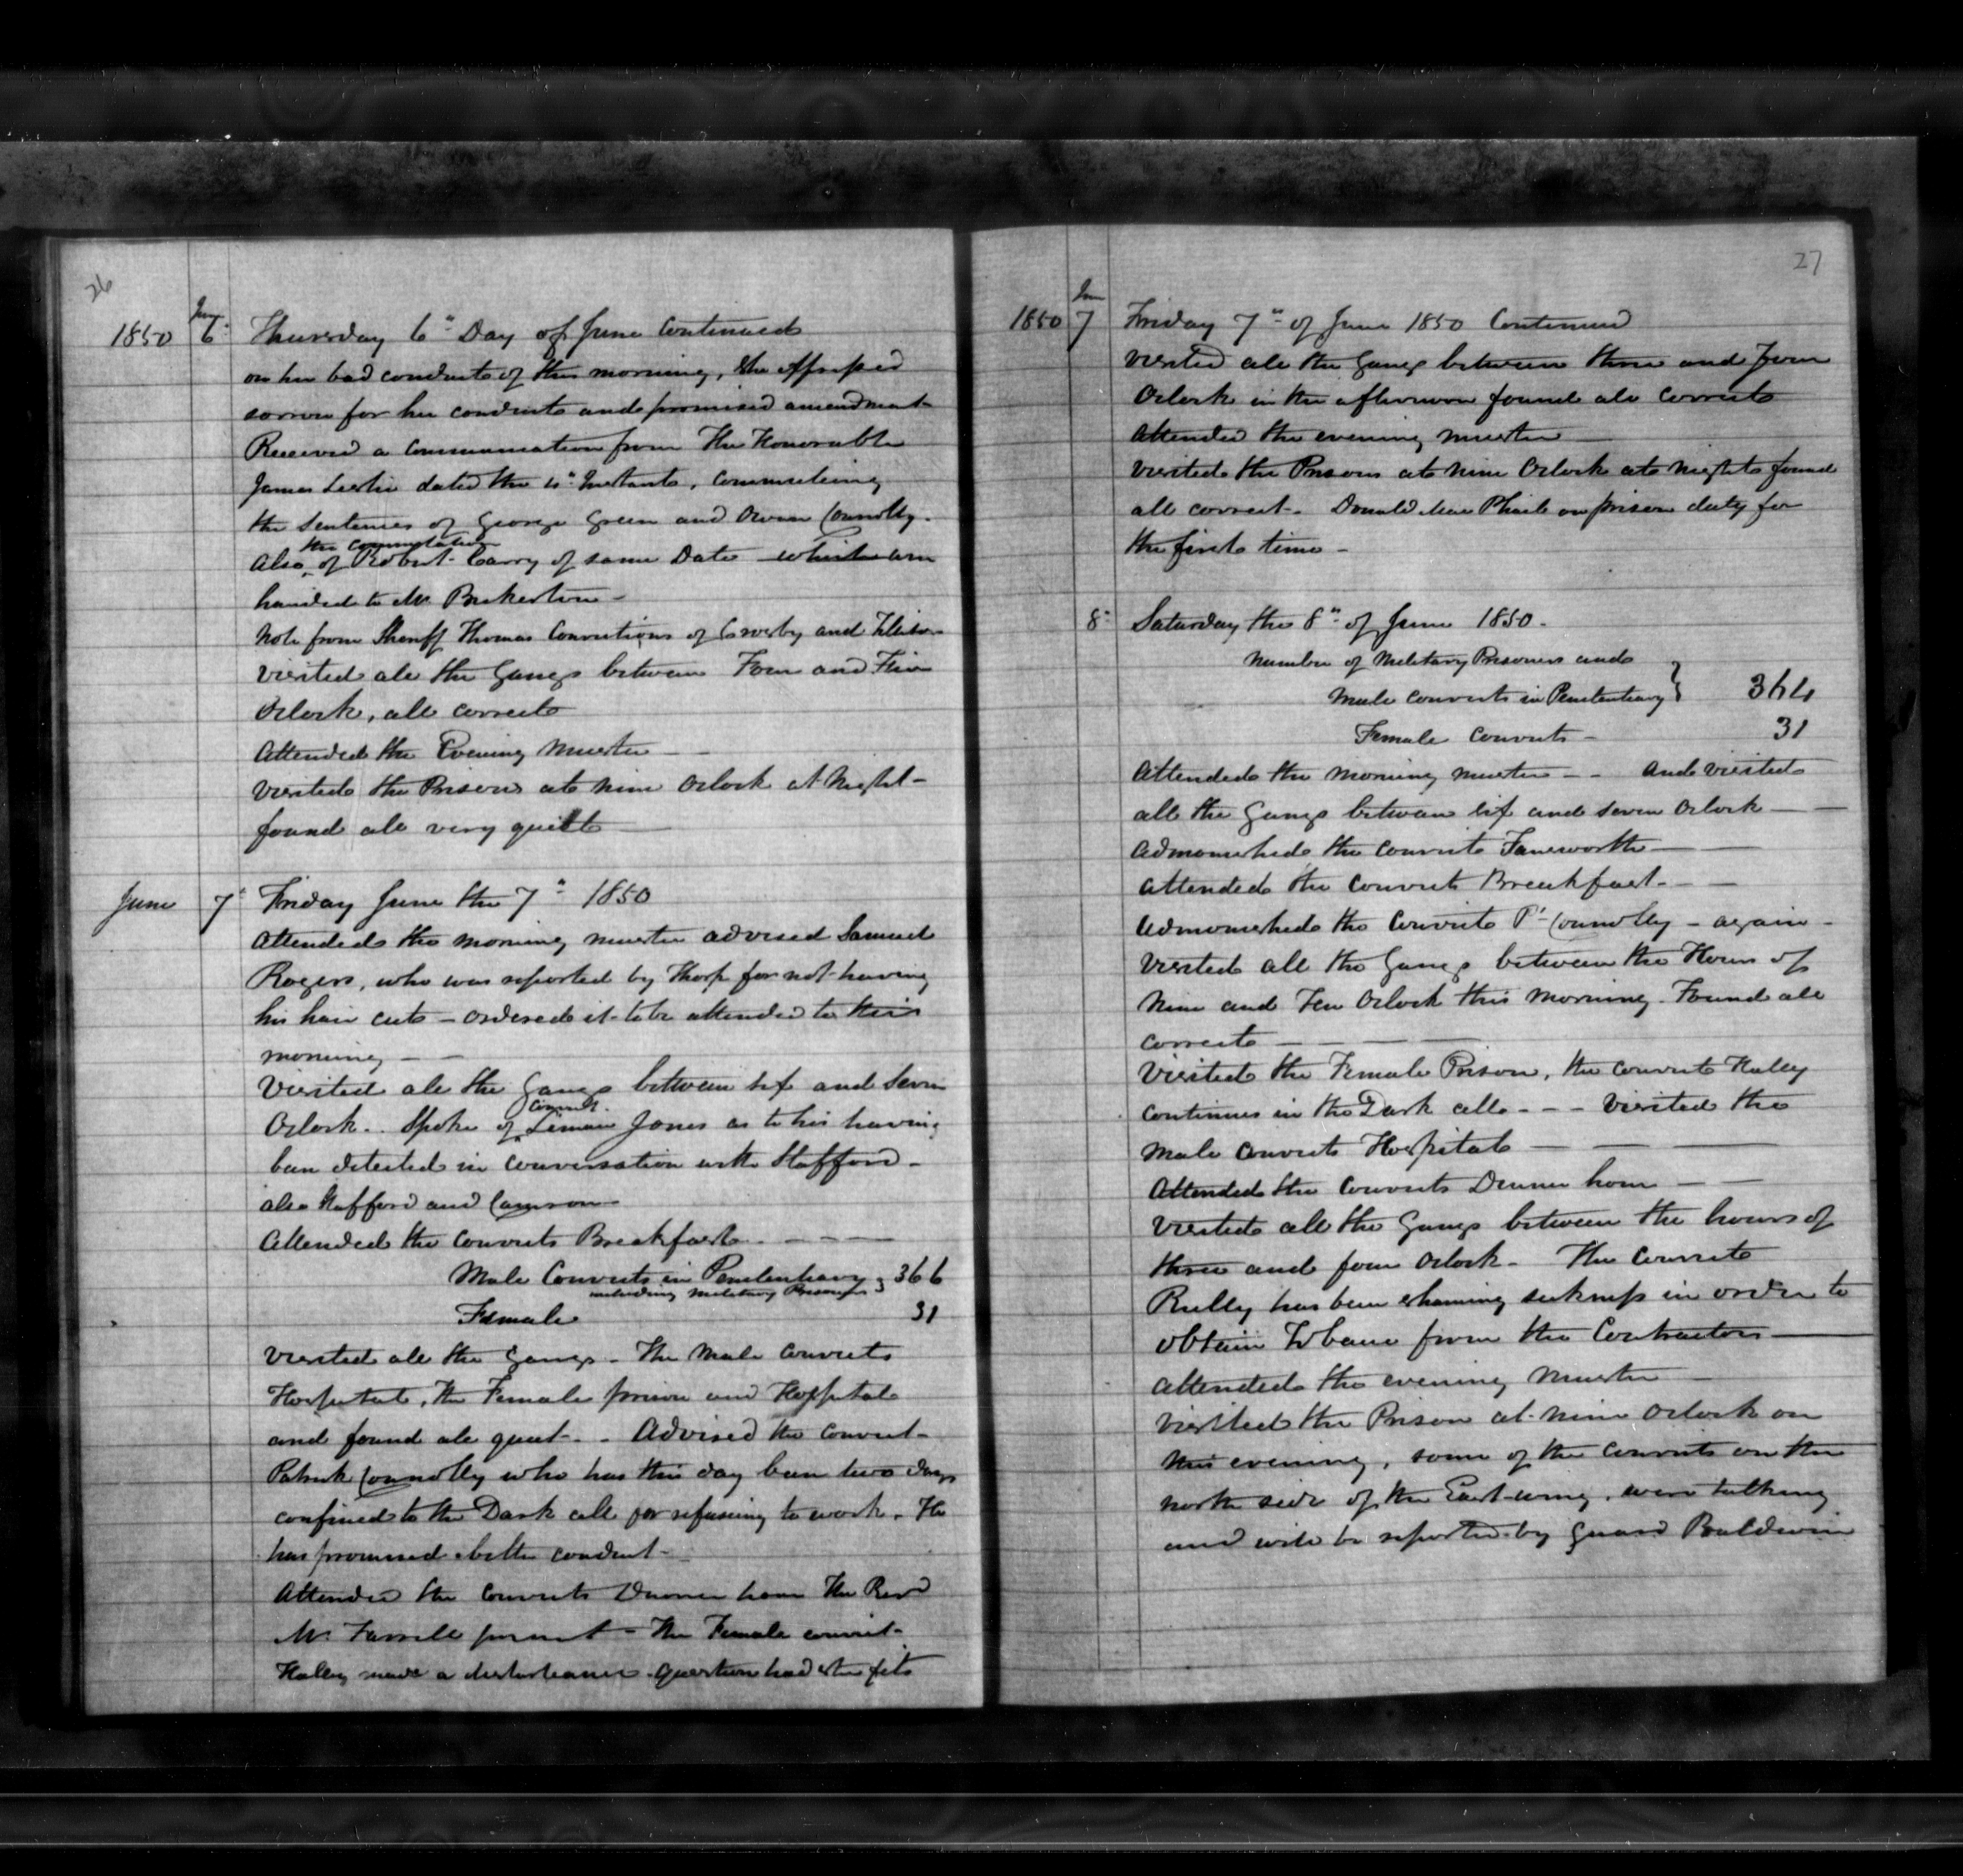 26
June
1850 6" Thursday 6" Day of June Continued
on her bad conduct of this morning, she expressed
sorrow for her conduct and promised amendment
Received a Communication from The Honorable
James Leslie dated the 4" Instant, Commuting
the Sentences of George Green and Owen Connolly.
the Commutation
also of Robert Carry of same Date which are
handed to Mr Bickerton -
Note from Sheriff Thomas Convictions of Crosby and
Visited all the Gangs between Four and Five
Oclock, all correct
Attended the Evening Muster
Visited the Prisons at nine Oclock at Night -
found all very quiett
June 7" Friday June the 7" 1850
Attended the morning muster advised Samuel
Rogers, who was reported by Thorp for not having
his hair cut - Ordered it to be attended to this
morning
Visited all the Gangs between six and Seven
Convict
Oclock - Spoke of Jones as to his having
been detected in conversation with Stafford -
also Stafford and Cameron
Attended the Convicts Breakfast
Male Convicts in Penitentiary } 366
including Military Prisoners
Female 31
Visited all the Gangs - The Male Convicts
Hospital, the Female prison and Hospital
and found all quiet - Advised the Convict
Patrick Connolly who has this day been two days
confined to the Dark cell for refusing to work. He
has promised better conduct -
Attended the Convicts Dinner hour The Revd
Mr Farrell present - The Female convict
Haley made a disturbance. Question had she fits
27
June
1850 7 Friday 7" of June 1850 Continued
visited all the Gangs between three and Four
Oclock in the afternoon found all correct
Attended the evening muster
Visited the Prisons at nine Oclock at night found
all correct - Donald Mac Phail on prison duty for
the first time -
8" Saturday the 8" of June 1850 -
Number of Military Prisoners and
Male convicts in Penitentiary } 364
Female Convicts - 31
Attended the morning muster - - And visited
all the Gangs between six and seven Oclock
Admonished the Convict Farnsworth
Attended the Convicts Breakfast -
Admonished the Convict Pt Connolly - again -
Visited all the Gangs between the Hours of
Nine and Ten Oclock this morning. Found all
correct
Visited the Female Prison, the convict Haley
continues in the Dark cell - - - Visited the
Male Convict Hospital
Attended the Convicts Dinner hour
Visited all the Gangs between the hours of
three and four Oclock - The Convict
Reilly has been shaming sickness in order to
obtain Tobacco from the Contractors
Attended the evening Muster
Visited the Prison at nine Oclock on
this evening, some of the Convicts on the
north side of the East wing, were talking
and will be reported by Guard Baldwin